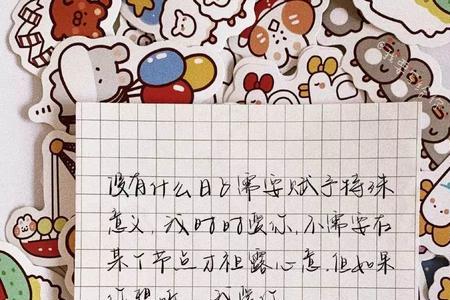 没有什么日子需要赋予特殊
意义，我时时爱你，不需要在
某个节点才袒露心意，但如果
你想听，我爱你